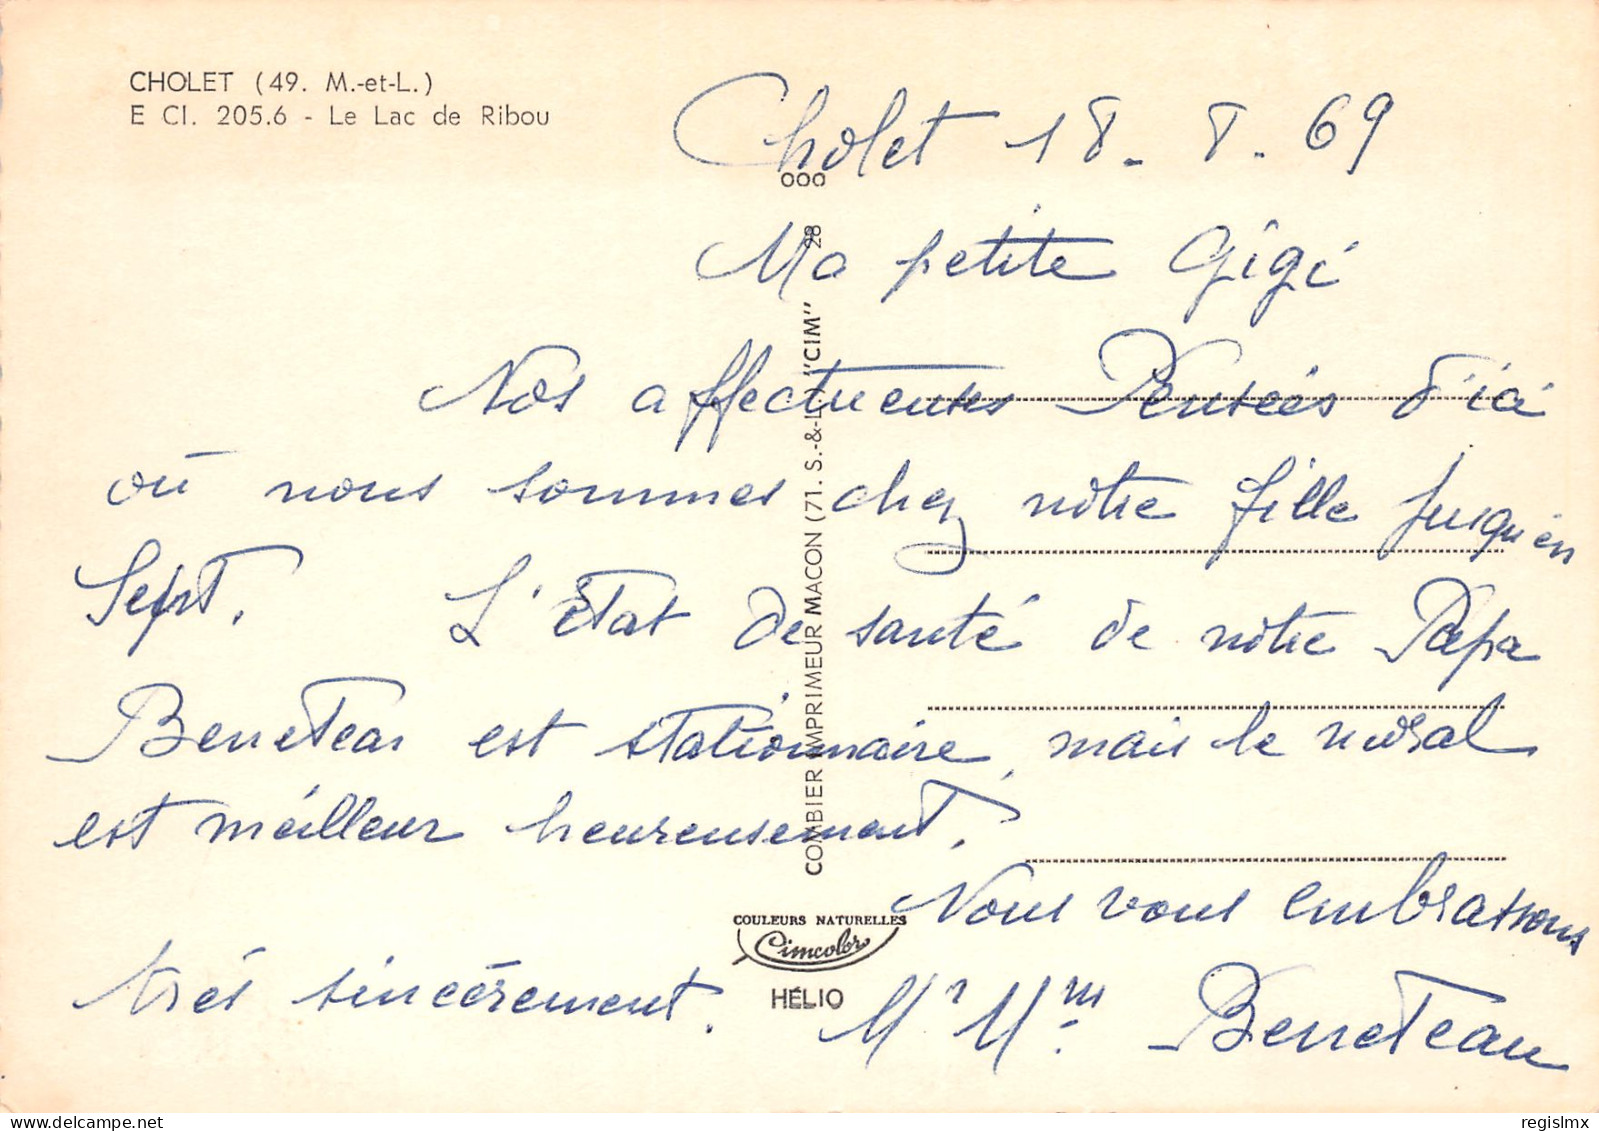 CHOLET (49. M.-et-L.)
E Cl. 205.6 - Le Lac de Ribou
Cholet 18-8-69
Ma petite Gigi
Nos affectueuses Pensées d'ici
où nous sommes chez notre fille jusqu'en
Sept. L'état de santé de notre Papa
Beneteau est stationnaire, mais le moral
est meilleur heureusement.
Nous vous embrassons
très sincèrement. Mr Mme Beneteau
OOO
COMBIER IMPRIMEUR MACON (71. S.-&-L.) "CIM" 28
COULEURS NATURELLES
Cimcolor
HÉLIO
regislmx